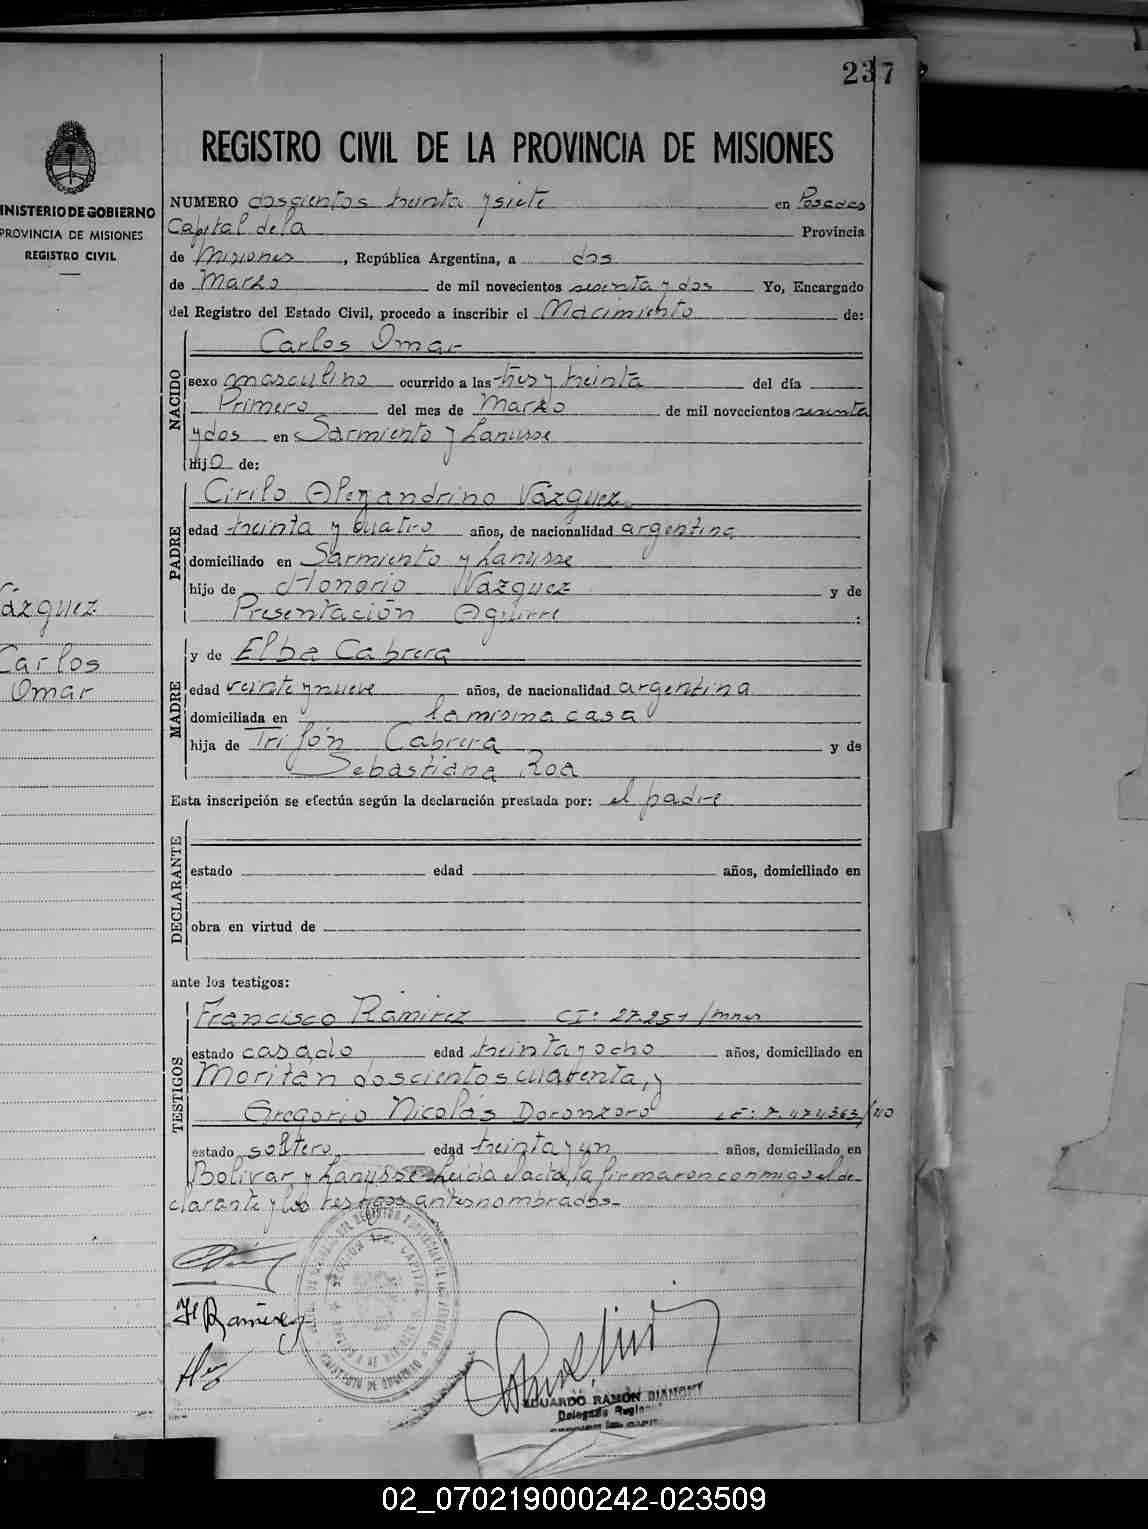 237
REGISTRO CIVIL DE LA PROVINCIA DE MISIONES
MINISTERIO DE GOBIERNO
PROVINCIA DE MISIONES
REGISTRO CIVIL
Vázquez
Carlos
Omar
NUMERO doscientos treinta y siete en Posadas
Capital de la Provincia
de Misiones, República Argentina, a dos
de Marzo de mil novecientos sesenta y dos Yo, Encargado
del Registro del Estado Civil, procedo a inscribir el Nacimiento de:
NACIDO
Carlos Omar
sexo masculino ocurrido a las tres y treinta del día
Primero del mes de Marzo de mil novecientos sesenta
y dos en Sarmiento y Lanusse
Hijo de:
PADRE
Cirilo Alejandrino Vázquez
edad treinta y cuatro años, de nacionalidad argentina
domiciliado en Sarmiento y Lanusse
hijo de Honorio Vázquez y de
Presentación Aguirre :
MADRE
y de Elba Cabrera
edad veinte y nueve años, de nacionalidad argentina
domiciliada en la misma casa
hija de Trifón Cabrera y de
Sebastiana Roa
Esta inscripción se efectúa según la declaración prestada por: el padre
DECLARANTE
estado edad años, domiciliado en
obra en virtud de
ante los testigos:
TESTIGOS
Francisco Ramirez CI: 27.251/mnes
estado casado edad treinta y ocho años, domiciliado en
Moritán doscientos cuarenta, y
Gregorio Nicolás Doronzoro LE: 7.474363/40
estado soltero edad treinta y un años, domiciliado en
Bolivar y Lanusse Leida el acta, la firmaron conmigo el de-
clarante y los testigos antes nombrados-
F Ramirez
EDUARDO RAMÓN
Delegado Regional
02_070219000242-023509